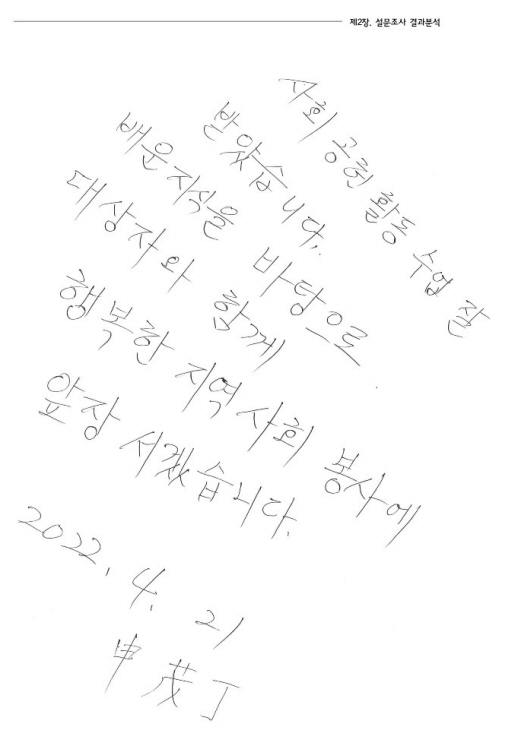 제2장. 설문조사 결과분석
사회 공헌 활동 수업 잘
받았습니다.
배운 지식을 바탕으로
대상자와 함께
행복한 지역사회 봉사에
앞장 서겠습니다.
2022. 4. 21
申茂丁